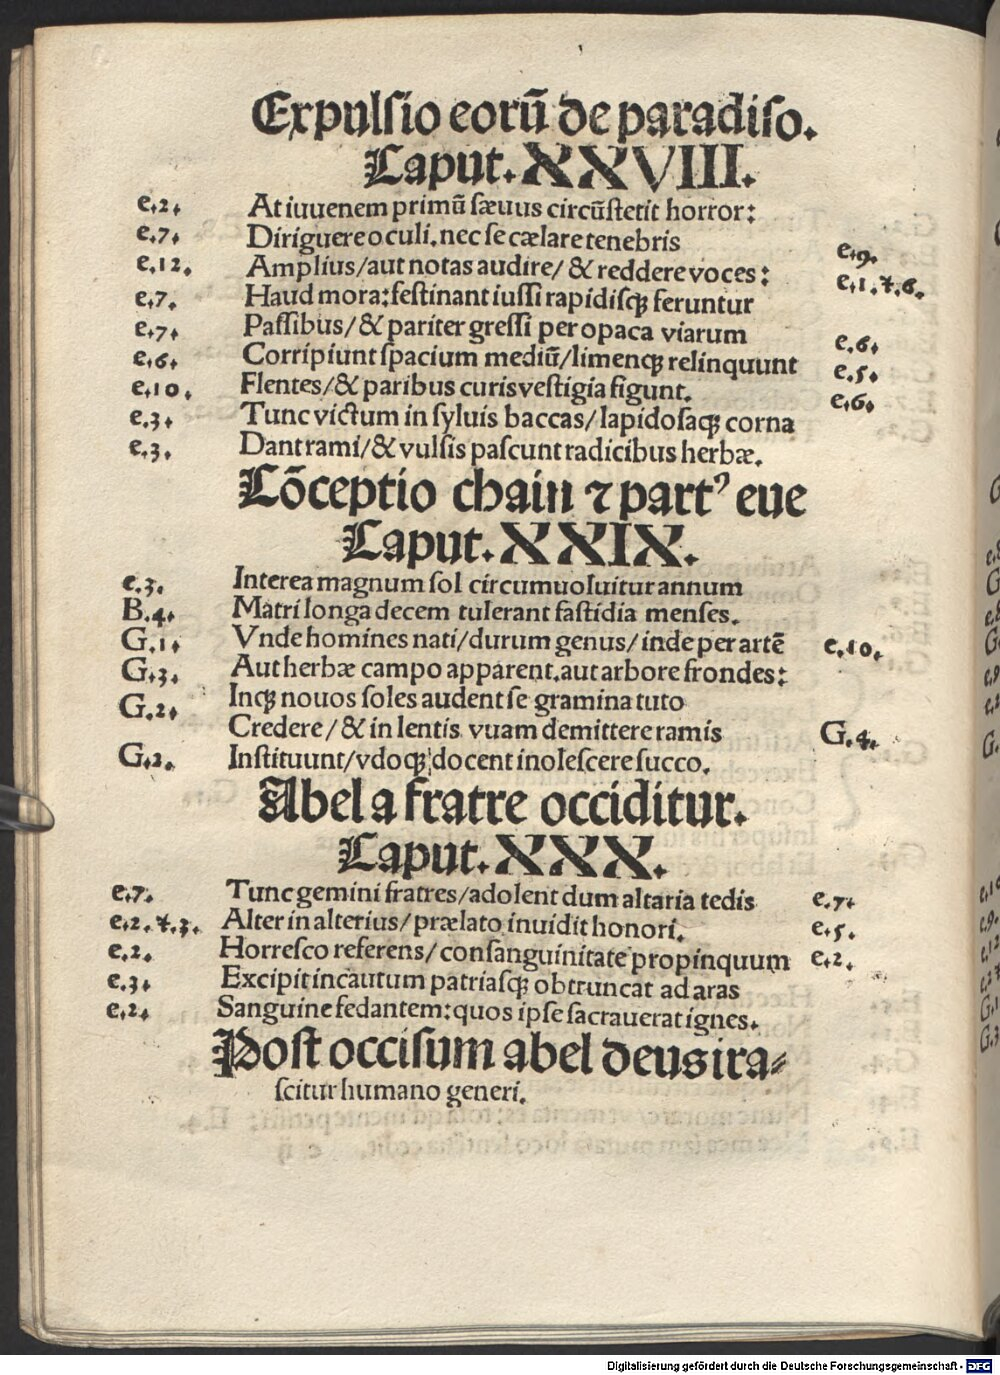 Expulſio eorū de paradiſo.
Caput. XXVIII.
e.2. At iuuenem primū ſæuus circūſtetit horror:
e.7. Diriguere oculi. nec ſe cælare tenebris e.9.
e.12. Amplius/aut notas audire/ & reddere voces: e.1.⁊.6.
e.7. Haud mora: feſtinant iuſſi rapidiſqꝫ feruntur
e.7. Paſſibus/& pariter greſſi per opaca viarum e.6.
e.6. Corripiunt ſpacium mediū/limenqꝫ relinquunt e.5.
e.10. Flentes/& paribus curis veſtigia figunt. e.6.
e.3. Tunc victum in ſyluis baccas/lapidoſaqꝫ corna
e.3. Dant rami/& vulſis paſcunt radicibus herbæ.
Cōceptio chain ⁊ partꝰ eue
Caput. XXIX.
e.3. Interea magnum ſol circumuoluitur annum
B.4. Matri longa decem tulerant faſtidia menſes.
G.1. Vnde homines nati/durum genus/inde per artē e.10.
G.3. Aut herbæ campo apparent.aut arbore frondes:
G.2. Inqꝫ nouos ſoles audent ſe gramina tuto
Credere/& in lentis vuam demittere ramis G.4.
G.2. Inſtituunt/vdoqꝫ docent inoleſcere ſucco.
Abel a fratre occiditur.
Caput. XXX.
e.7. Tunc gemini fratres/adolent dum altaria tedis e.7.
e.2.⁊.3. Alter in alterius/prælato inuidit honori. e.5.
e.2. Horreſco referens/conſanguinitate propinquum e.2.
e.3. Excipit incautum patriaſqꝫ obtruncat ad aras
e.2. Sanguine fedantem: quos ipſe ſacrauerat ignes.
Poſt occiſum abel deus ira⸗
ſcitur humano generi.
Digitalisierung gefördert durch die Deutsche Forschungsgemeinschaft - DFG